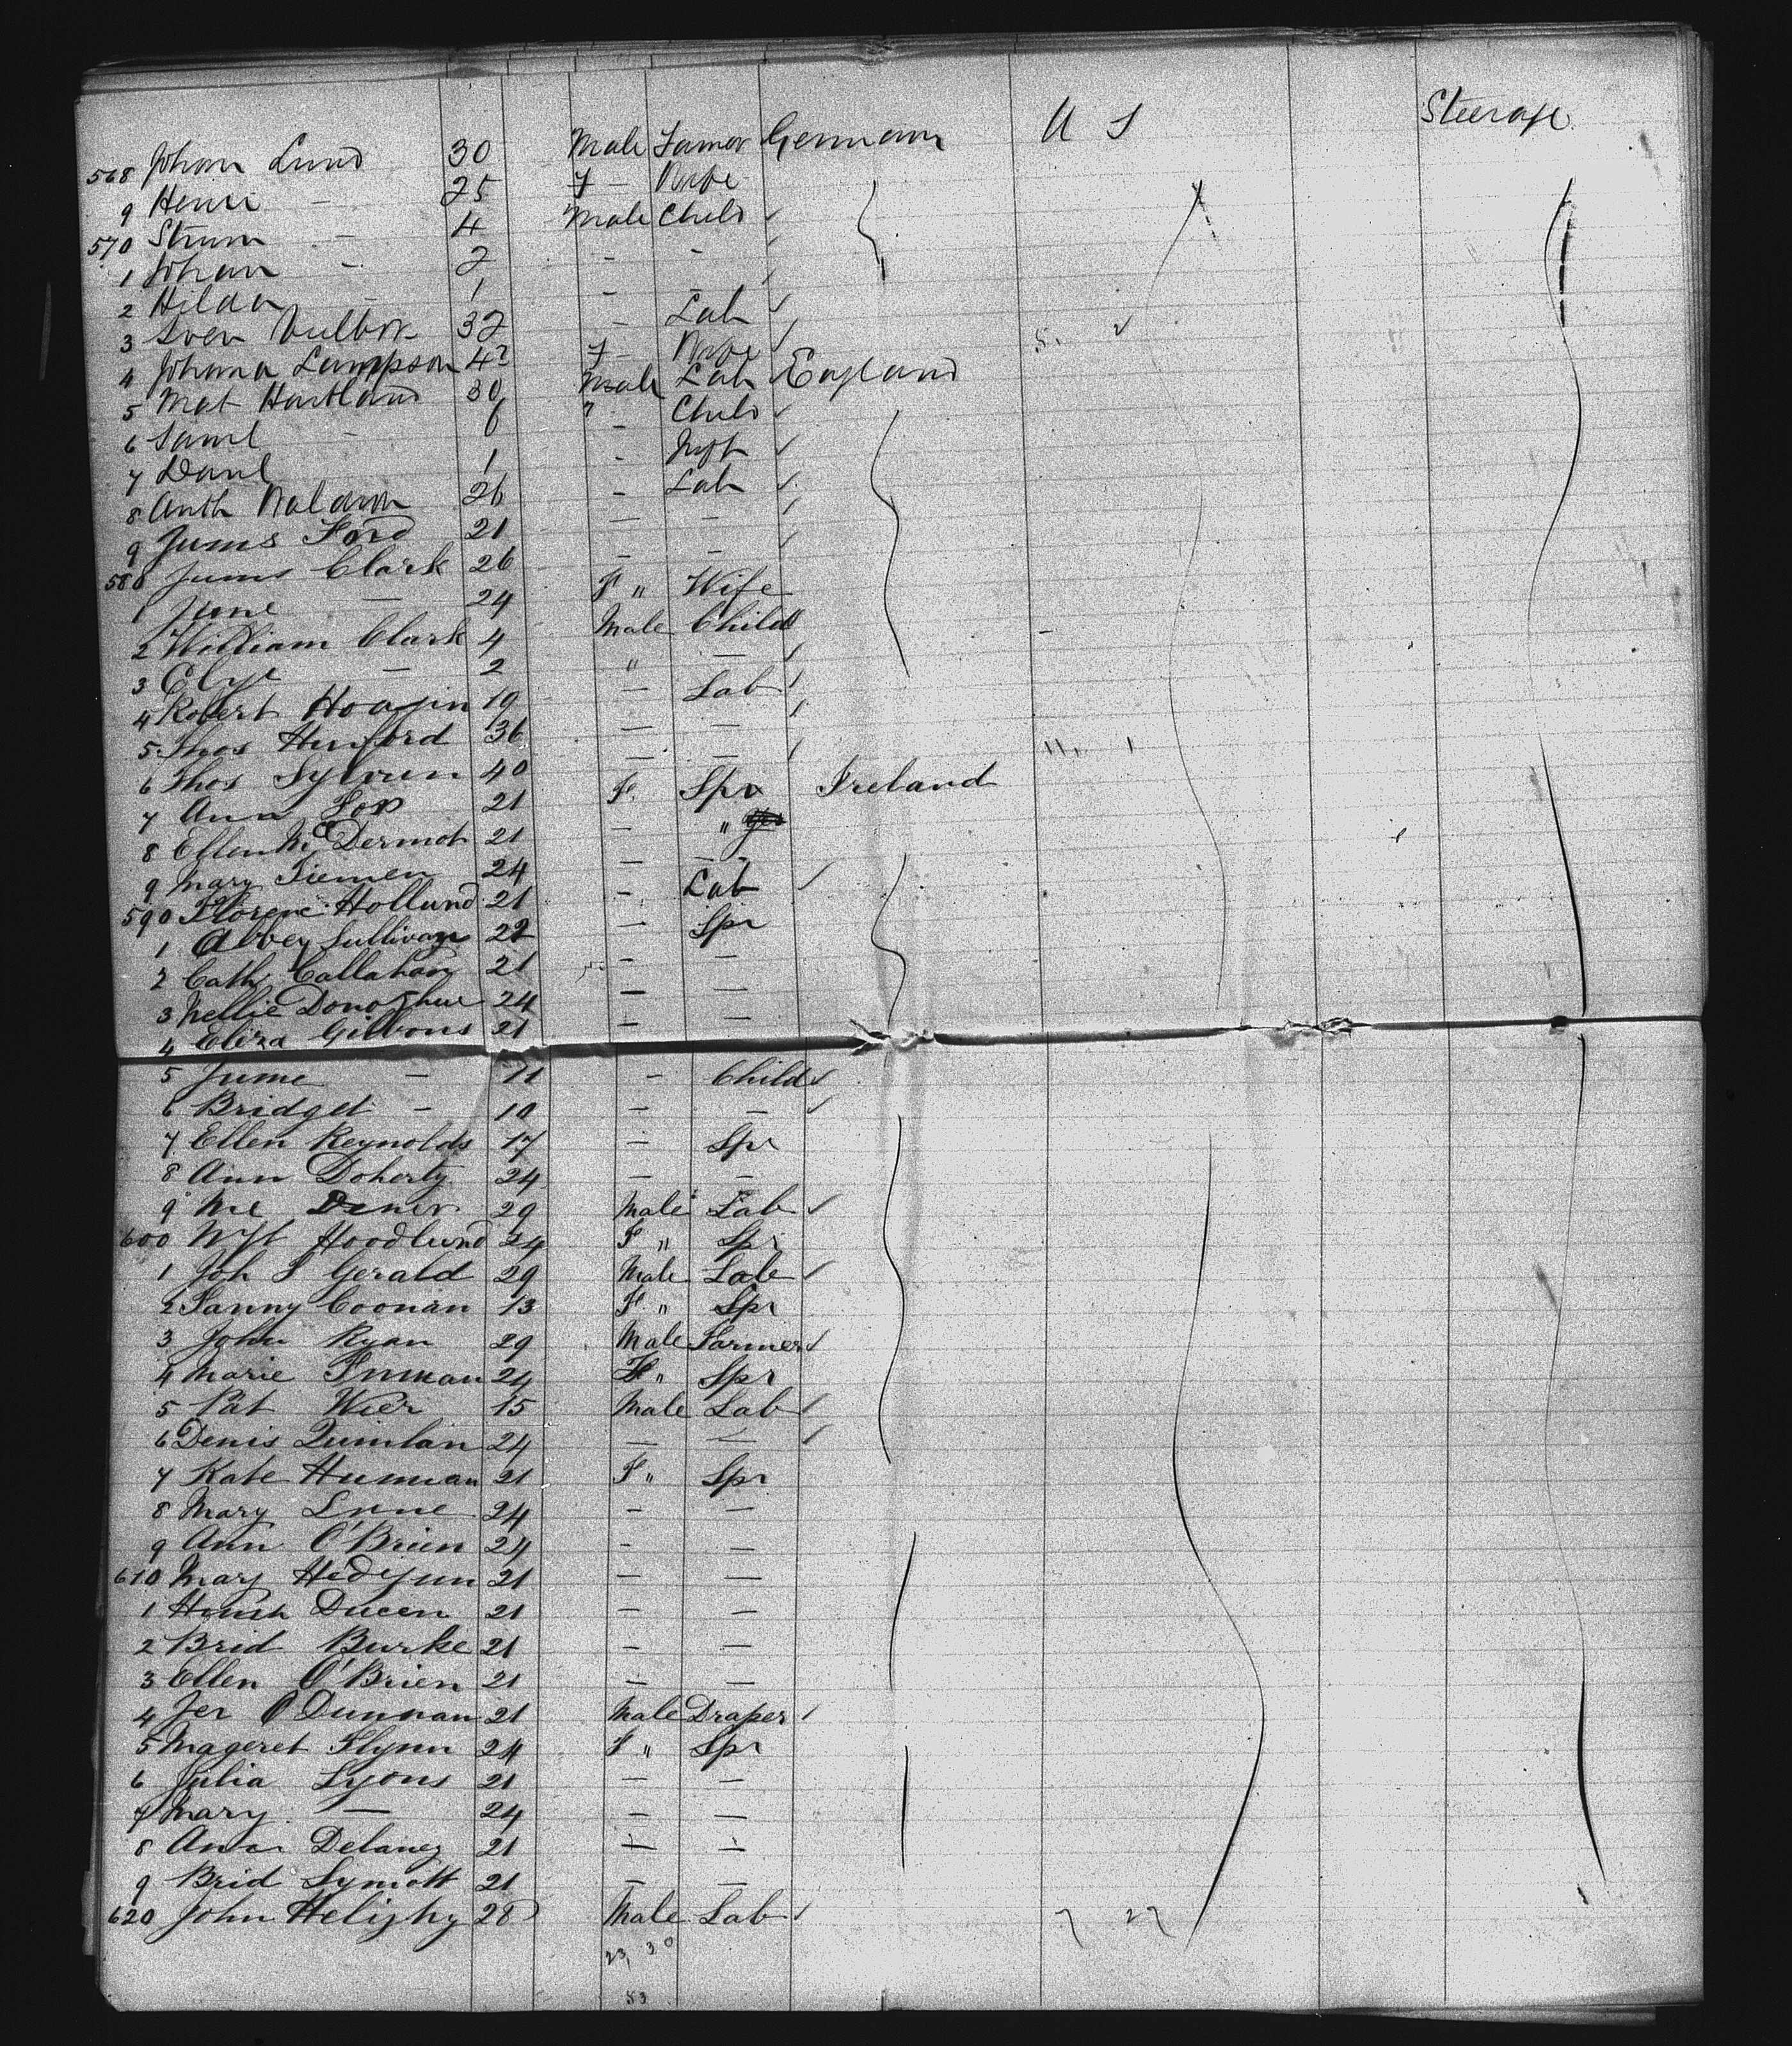 568 Johan Lund 30 Male Farmer Germany U S Steerage
9 Henri — 25 F — Wife
570 — 4 Male Child
1 Johan — 2 — —
2 Hilda — 1 — —
3 Sven 32 — Lab
4 Johana Lampson 42 F — Wife
5 Mat Hartland 30 Male Lab England
6 Saml — 6 " Child
7 Danl 1 — Inft
8 Anth Waldron 26 — Lab
9 James Ford 21 — —
580 James Clark 26 — —
1 Jane — 24 F " Wife
2 William Clark 4 Male Child
3 — 2 " —
4 Robert 19 — Lab
5 Thos 36 — —
6 Thos 40 — —
7 Ann Fox 21 F. Spr Ireland
8 Ellen McDermot 21 — "
9 Mary Tiernen 24 — —
590 Florenc Holland 21 — Lab
1 Abbey Sullivan 22 — Spr
2 Cath Callahan 21 — —
3 Nellie Donoghue 24 — —
4 Eliza Gibbons 21 — —
5 Jane — 11 — Child
6 Bridget — 10 — —
7 Ellen Reynolds 17 — Spr
8 Ann Doherty 24 — —
9 29 Male Lab
600 24 F " Spr
1 Joh F Gerald 29 Male Lab
2 Fanny Coonan 13 F " Spr
3 John Ryan 29 Male Farmer
4 Marie 24 F " Spr
5 Pat Wier 15 Male Lab
6 Denis Quinlan 24 — —
7 Kate 21 F " Spr
8 Mary 24 — —
9 Ann O'Brien 24 — —
610 Mary 21 — —
1 21 — —
2 Brid Burke 21 — —
3 Ellen O'Brien 21 — —
4 Jer 21 Male Draper
5 Mageret Flynn 24 F " Spr
6 Julia Lyons 21 — —
7 Mary — 24 — —
8 Ann Delaney 21 — —
9 Brid Lymott 21 — —
620 John 28 Male Lab
23, 30
53